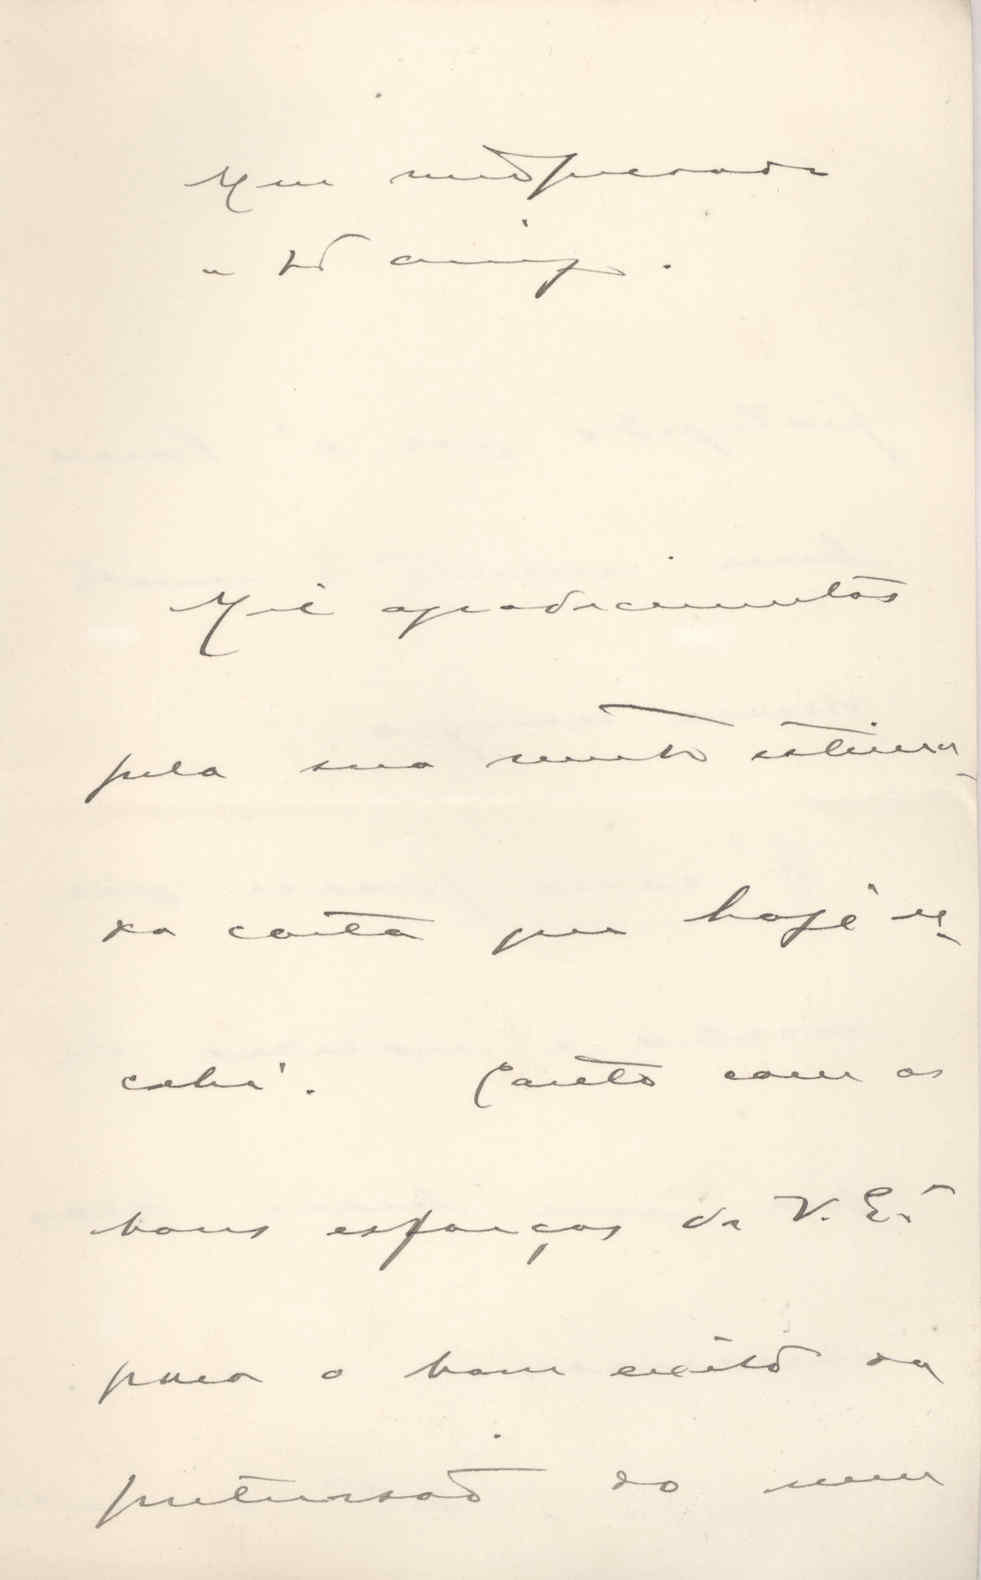 Meu muito presado
e bom amigo.
Mil agradecimentos
pela sua muito estima-
da carta que hoje re-
cebi. Conto com os
bons esforços de V. Ex.ª
para o bom exito da
pretensão do meu